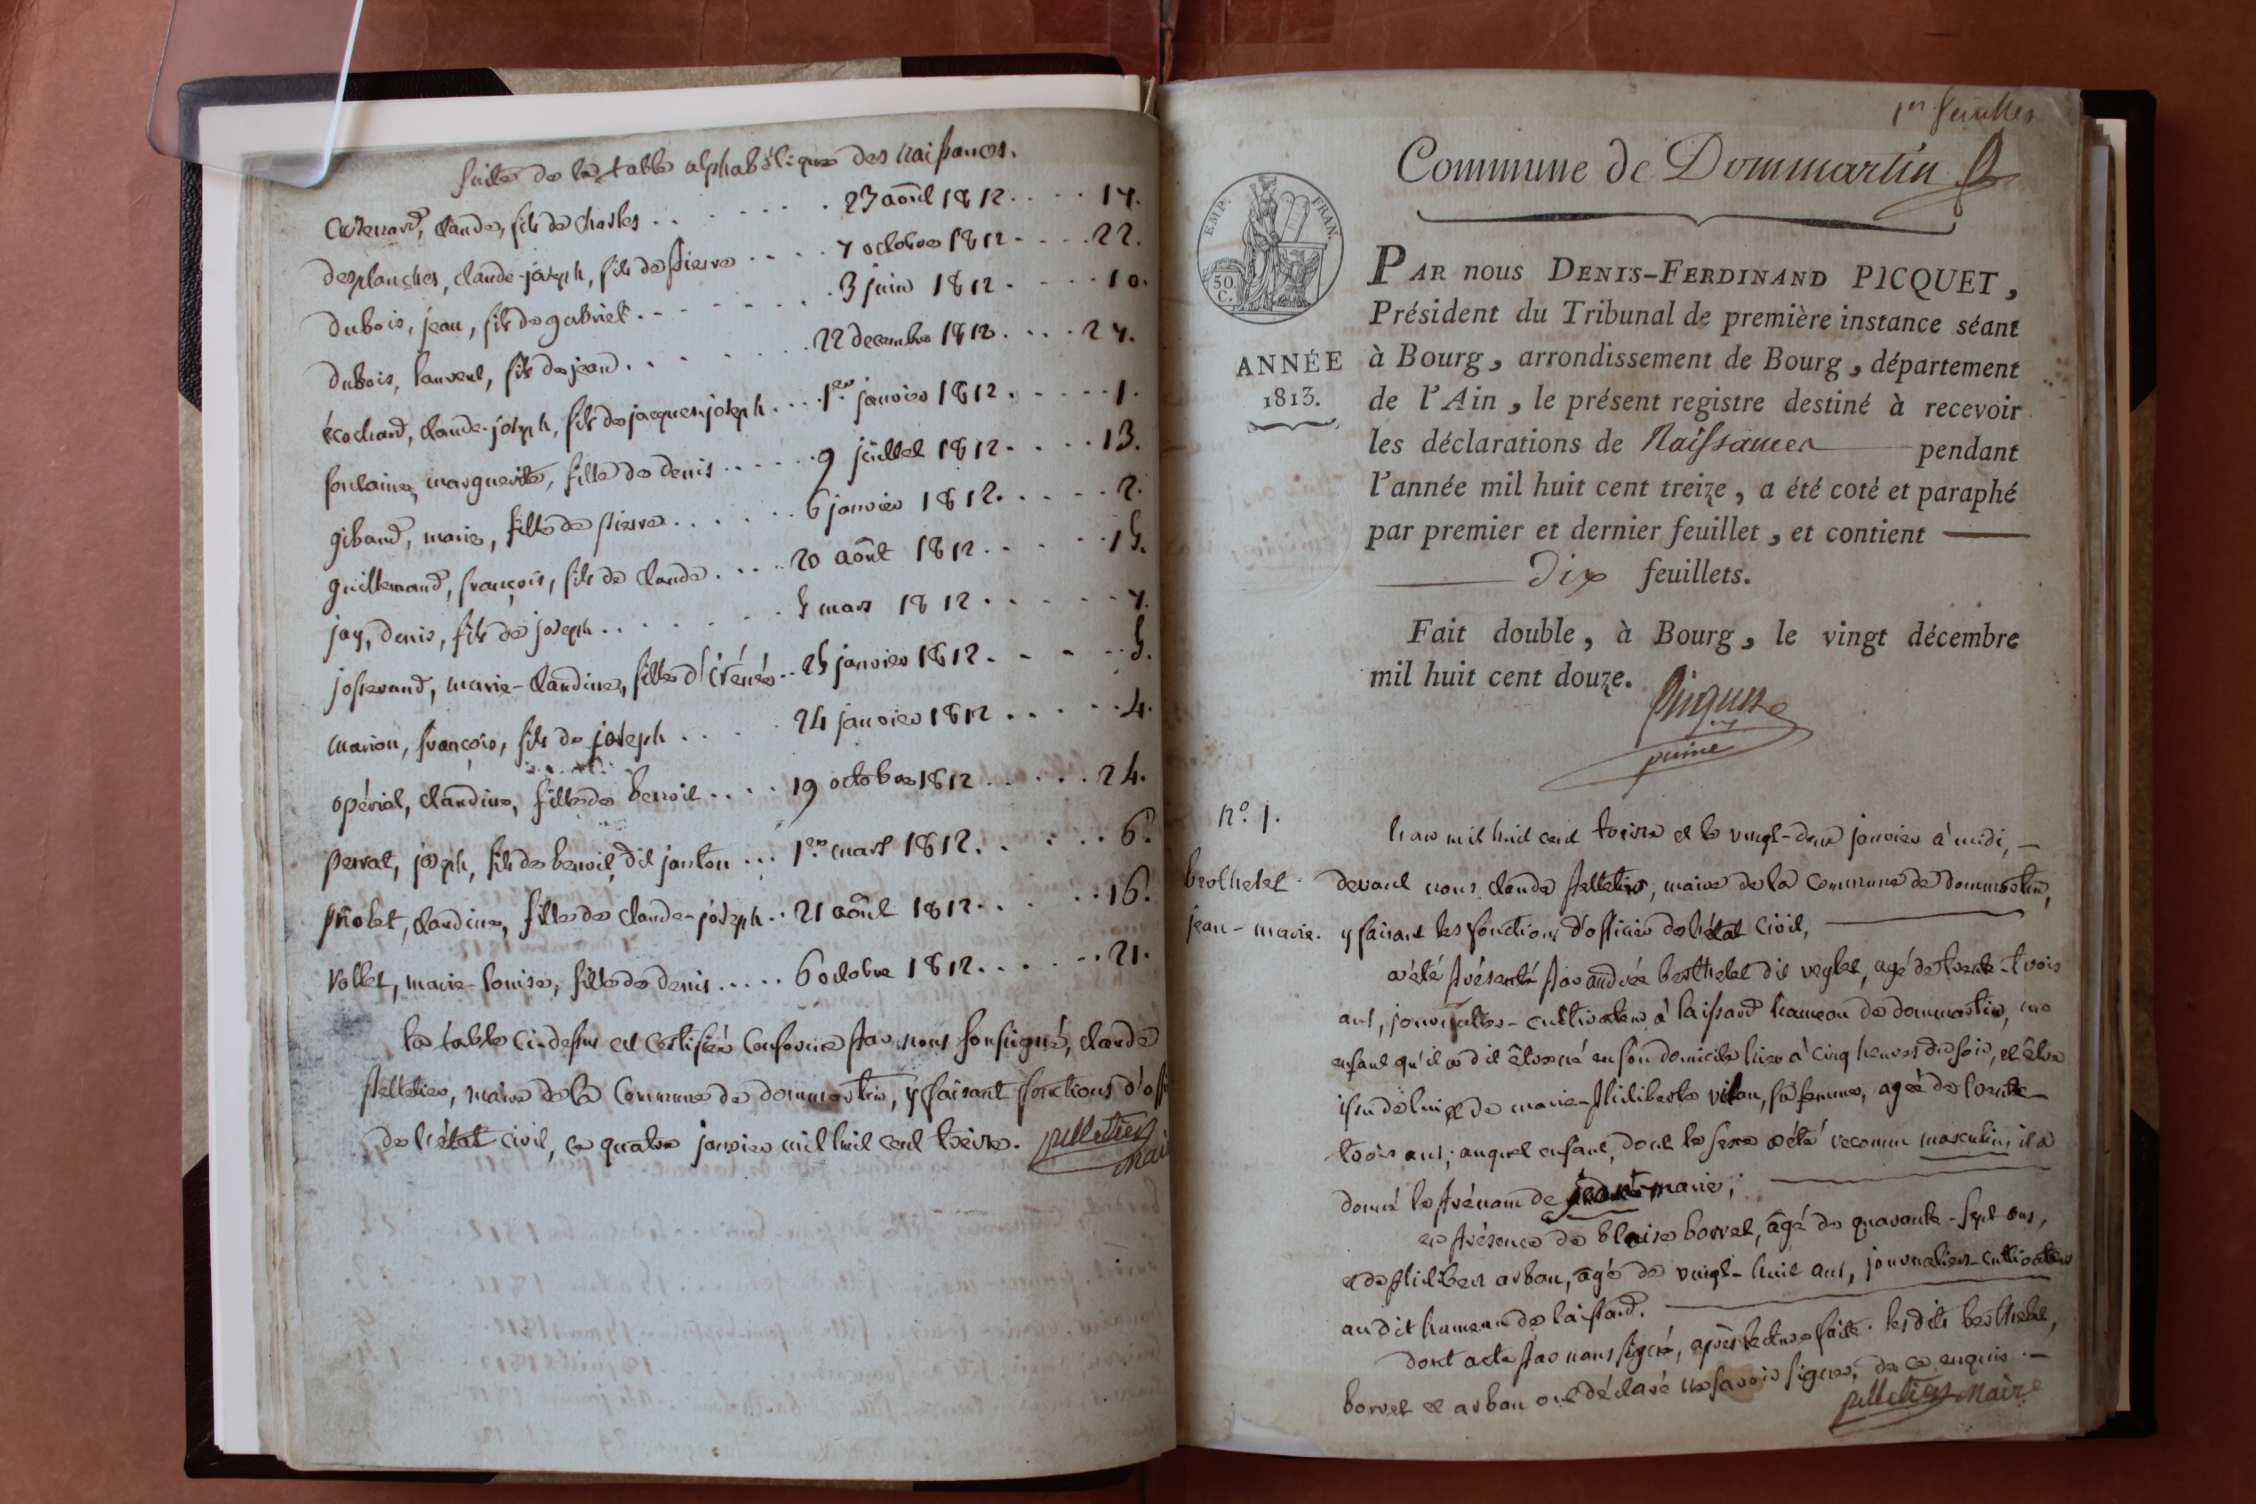 suite de la table alphabétique des naissances.
cuzenard, claude, fils de charles . . . . . . . 23 août 1812 . . . . 17.
desplanches, claude-joseph, fils de pierre . . . . 7 octobre 1812 . . . . 22.
dubois, jean, fils de gabriel . . . . . . . 3 juin 1812 . . . . 10.
dubois, laurent, fils de jean . . . . . . . 22 decembre 1812 . . . . 27.
écochard, claude-joseph, fils de jacques-joseph . . . . 1er janvier 1812 . . . . . 1.
fontaine, marguerite, fille de denis . . . . . . 9 juillet 1812 . . . . 13.
giband, marie, fille de pierre . . . . . . 6 janvier 1812 . . . . . 2.
guillemaud, françois, fils de claude . . . . 20 août 1812 . . . . . 15.
jay, denis, fils de joseph . . . . . . . 5 mars 1812 . . . . . 7.
josserand, marie-claudine, fille d'irénée . . 25 janvier 1812 . . . . . 5.
marion, françois, fils de joseph . . . . . 24 janvier 1812 . . . . . 4.
opérial, claudine, fille de benoit . . . . 19 octobre 1812 . . . . . 24.
perrat, joseph, fils de benoit, dit janton . . . 1er mars 1812 . . . . . 6.
claudine, fille de claude-joseph . . 21 août 1812 . . . . . 16.
vollet, marie-louise, fille de denis . . . . . 6 octobre 1812 . . . . . 21.
la table ci-dessus est certifiée conforme par nous soussigné, claude
pelletier, maire de la commune de dommartin, y faisant fonctions d'off
de l'état civil, ce quatre janvier mil huit cent treize. pelletier
mai
1er feuillet
Commune de Dommartin
EMP. FRAN.
50. C.
ANNÉE
1813.
PAR nous DENIS-FERDINAND PICQUET,
Président du Tribunal de première instance séant
à Bourg, arrondissement de Bourg, département
de l'Ain, le présent registre destiné à recevoir
les déclarations de Naissances pendant
l'année mil huit cent treize, a été coté et paraphé
par premier et dernier feuillet, et contient
Dix feuillets.
Fait double, à Bourg, le vingt décembre
mil huit cent douze.
Picquet
n° 1.
berthelet
jean-marie.
L'an mil huit cent treize et le vingt-deux janvier à midi,
devant nous claude pelletier, maire de la commune de dommartin,
y faisant les fonctions d'officier de l'état civil,
a été présenté par andrée berthelet dit veglet, agé de trente-trois
ans, journalier-cultivateur à laissard hameau de dommartin, un
enfant qu'il a dit être né en son domicile hier à cinq heures du soir, et être
issu de lui et de marie-philiberte vitau, sa femme, agée de trente-
trois ans; auquel enfant, dont le sexe a été reconnu masculin, il a
donné le prénom de jean-marie;
en présence de blaise borret, âgé de quarante-sept ans,
et de philibert arban, âgé de vingt-huit ans, journaliers-cultivateurs
audit hameau de laissard.
dont acte par nous signé, après lecture faite. lesdits berthelet,
borret et arban ont déclaré ne savoir signer, de ce enquis.
pelletier maire